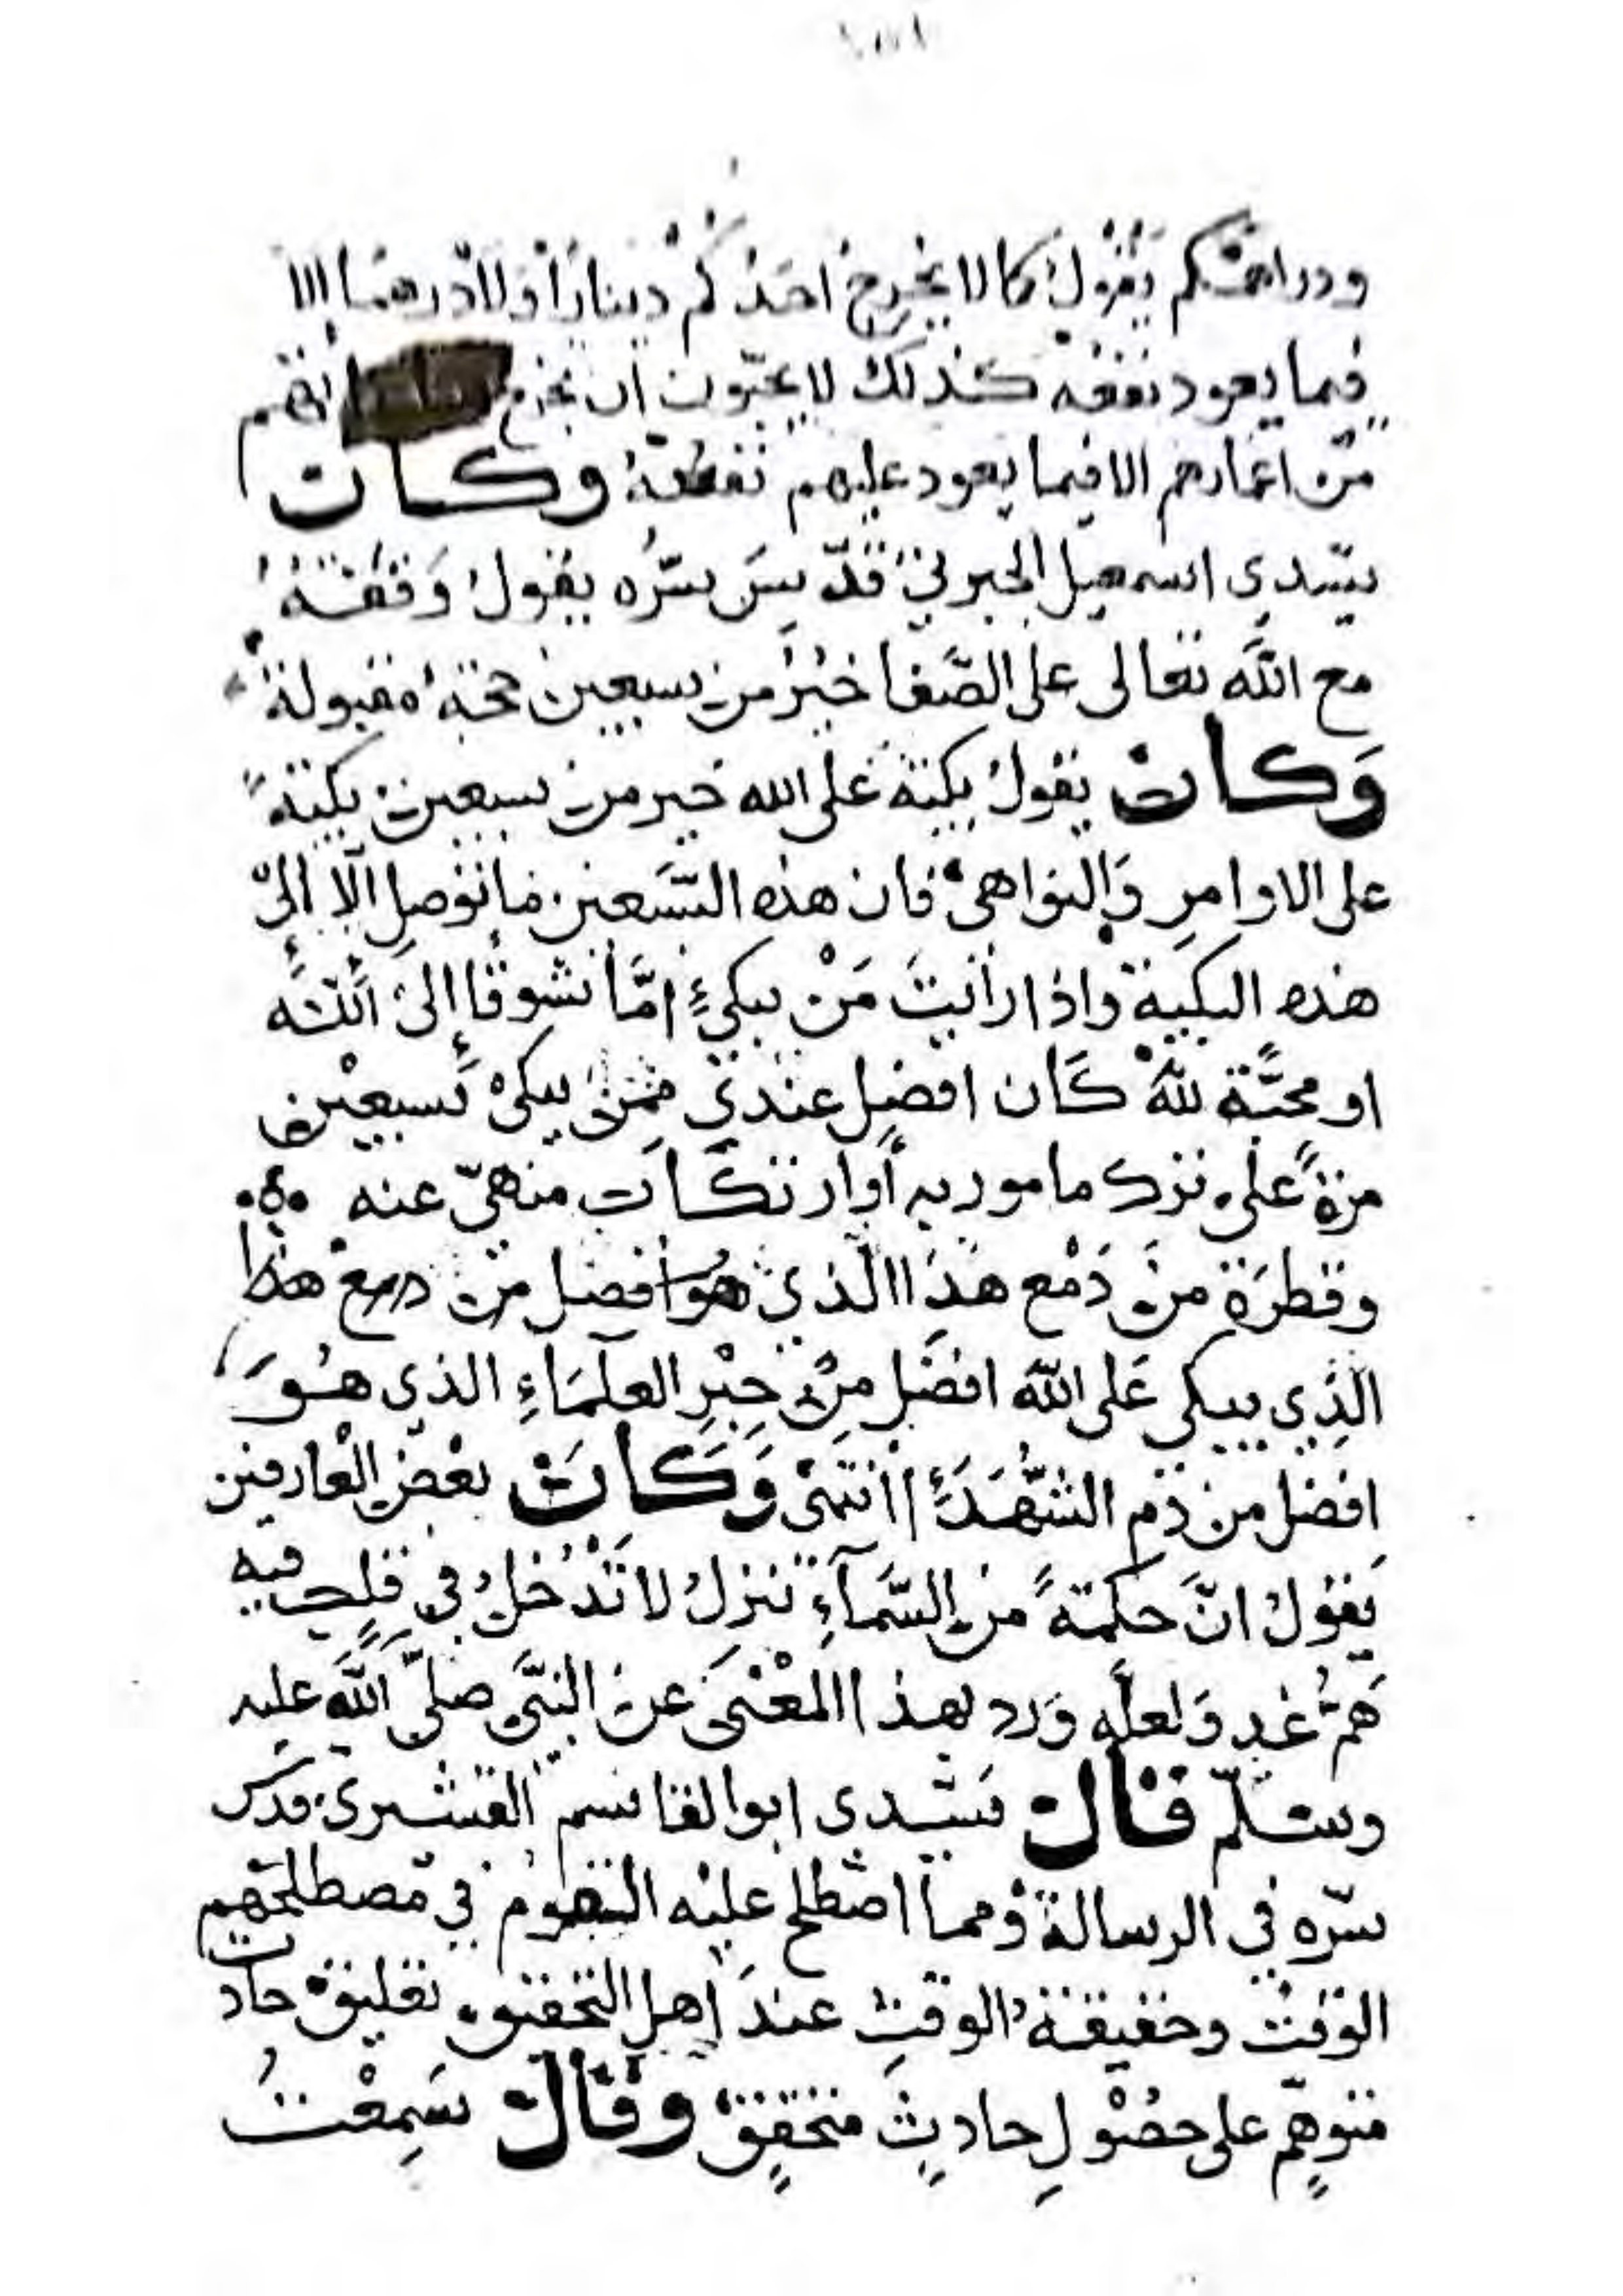 ودراهمكم يقول كما لا يخرج احدكم دينارا ولا درهما الا
فيما يعود نفعه كذلك لا يحبون ان يخرج
من اعمارهم الا فيما يعود عليهم نفعه وكان
سيدي اسمعيل الجبرتي قدّس سرّه يقول وَقفةٌ
مع الله تعالى على الصَّفا خيرٌ من سبعين حجة مقبولة
وَكان يقول بكية على الله خير من سبعين بكيةً
على الاوامرِ وَالنواهي فان هذه السَّبعين ما توصل الّا الى
هذه البكية واذا رأيتَ مَنْ يبكي امَّا تشوقًا إلى الله
او محبَّة لله كَان افضل عندي ممن يبكي سبعين
مرةً على ترك مامور به أو ارتكاب منهيّ عنه
وقطرَة من دَمْع هذا الذي هو افضل من دمع هذا
الذِي يبكي عَلى الله افضَل مِن حِبْرِ العلمَاءِ الذي هُوَ
افضل من دم الشُّهَدَاء انتهى وَكَان بعْض الْعَارفين
يَقول انَّ حكمةً من السَّمآءِ تنزل لا تَدْخلُ في قلبٍ فيه
هَمُّ غدٍ وَلعلَّه وَرد بهذا المعْنَى عن النبَّي صلىَّ اللَّه عليه
وسلّم قال سيّدي ابو القاسم القشيرى قدس
سرّه في الرسالة ومما اصْطلح عليْه القوم في مصطلحهم
الوقت وحقيقة الوقتِ عندَ اهل التحقيق تعليق حادث
متوهّمٍ على حصُولِ حادثٍ متحققٍ وقال سَمِعْتُ